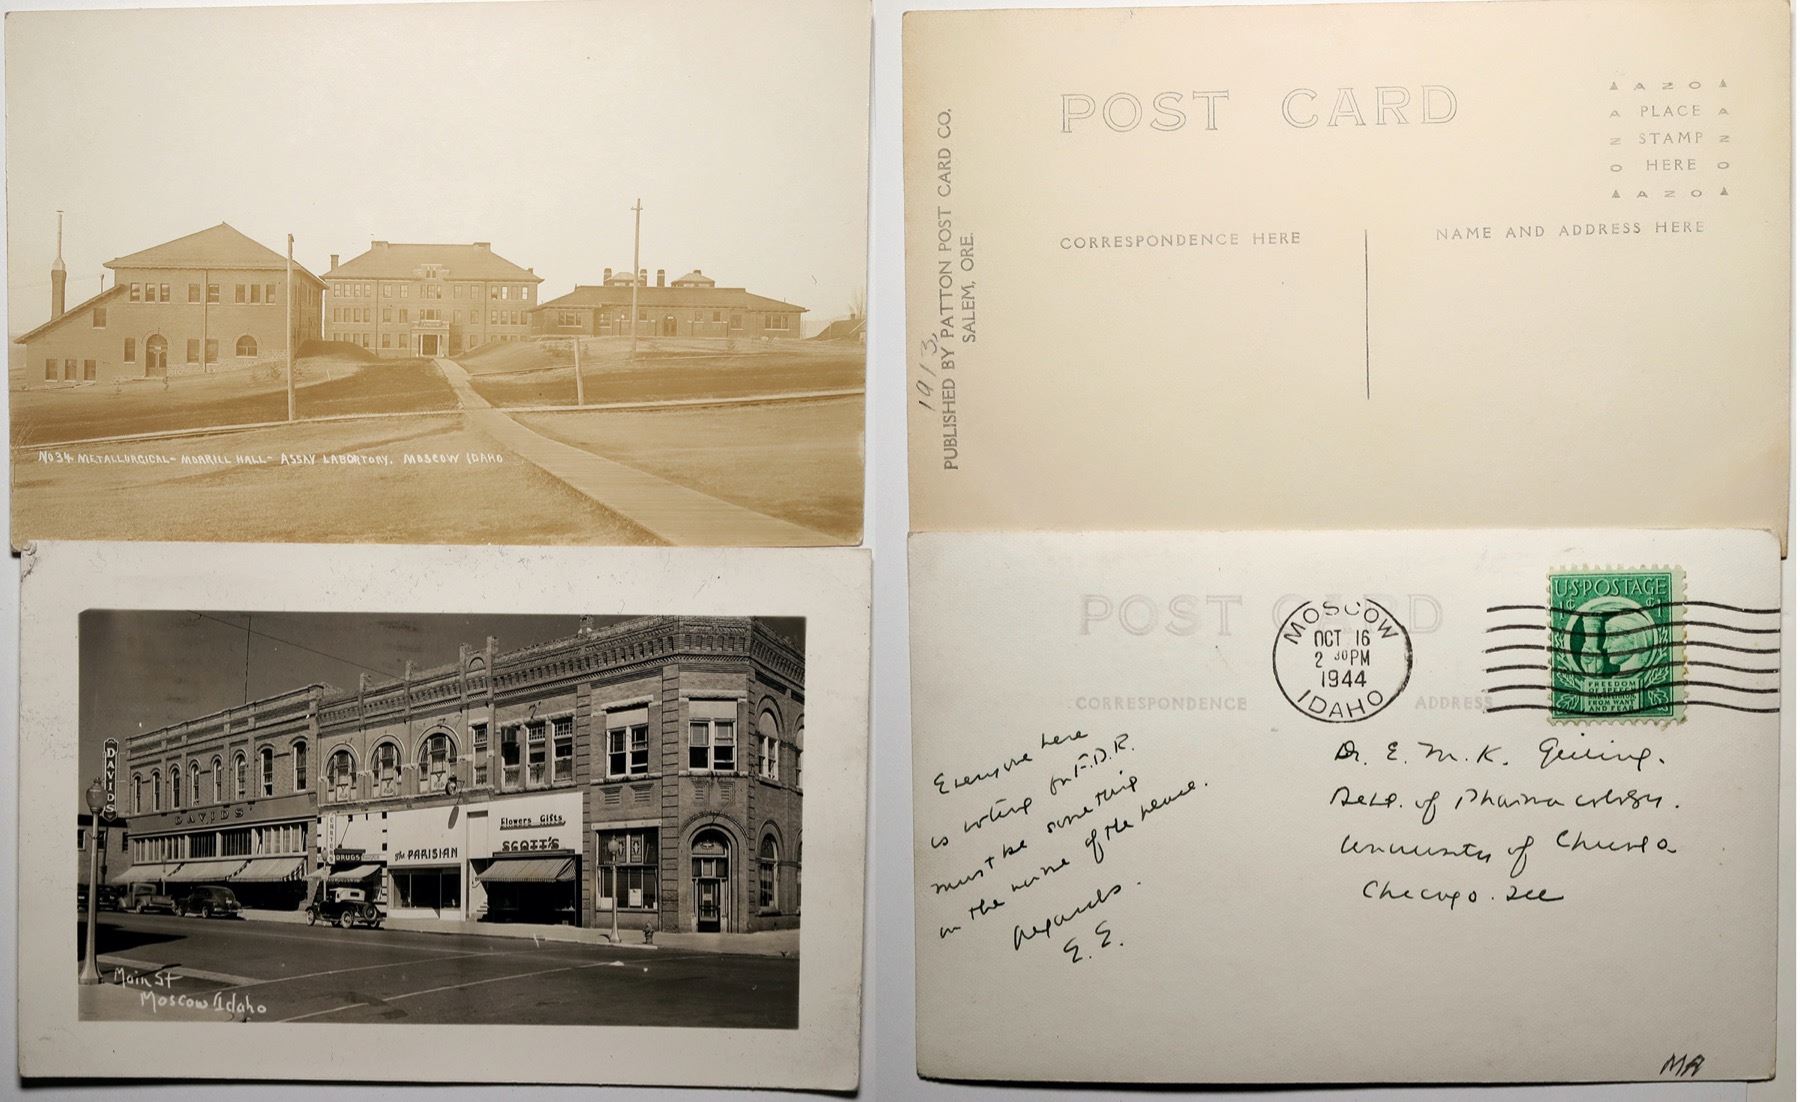 No 34. METALLURGICAL - MORRILL HALL - ASSAY LABORTORY. MOSCOW IDAHO
POST CARD
AZO
A PLACE A
Z STAMP Z
O HERE O
AZO
CORRESPONDENCE HERE
NAME AND ADDRESS HERE
1913
PUBLISHED BY PATTON POST CARD CO.
SALEM, ORE.
DAVIDS
DAVIDS'
DRUGS
The PARISIAN
Flowers Gifts
SCOTT'S
Main St
Moscow Idaho
POST CARD
MOSCOW
OCT 16
2 30 PM
1944
IDAHO
U·S·POSTAGE
1¢ ¢1
FREEDOM
OF SPEECH
AND RELIGION
FROM WANT
AND FEAR
CORRESPONDENCE
ADDRESS
Everyone here
is voting for F.D.R.
must be something
in the nature of the peace.
Regards.
E. E.
Dr. E. M. K. Geiling.
Dept. of Pharmacology.
University of Chicago
Chicago. Ill
MR